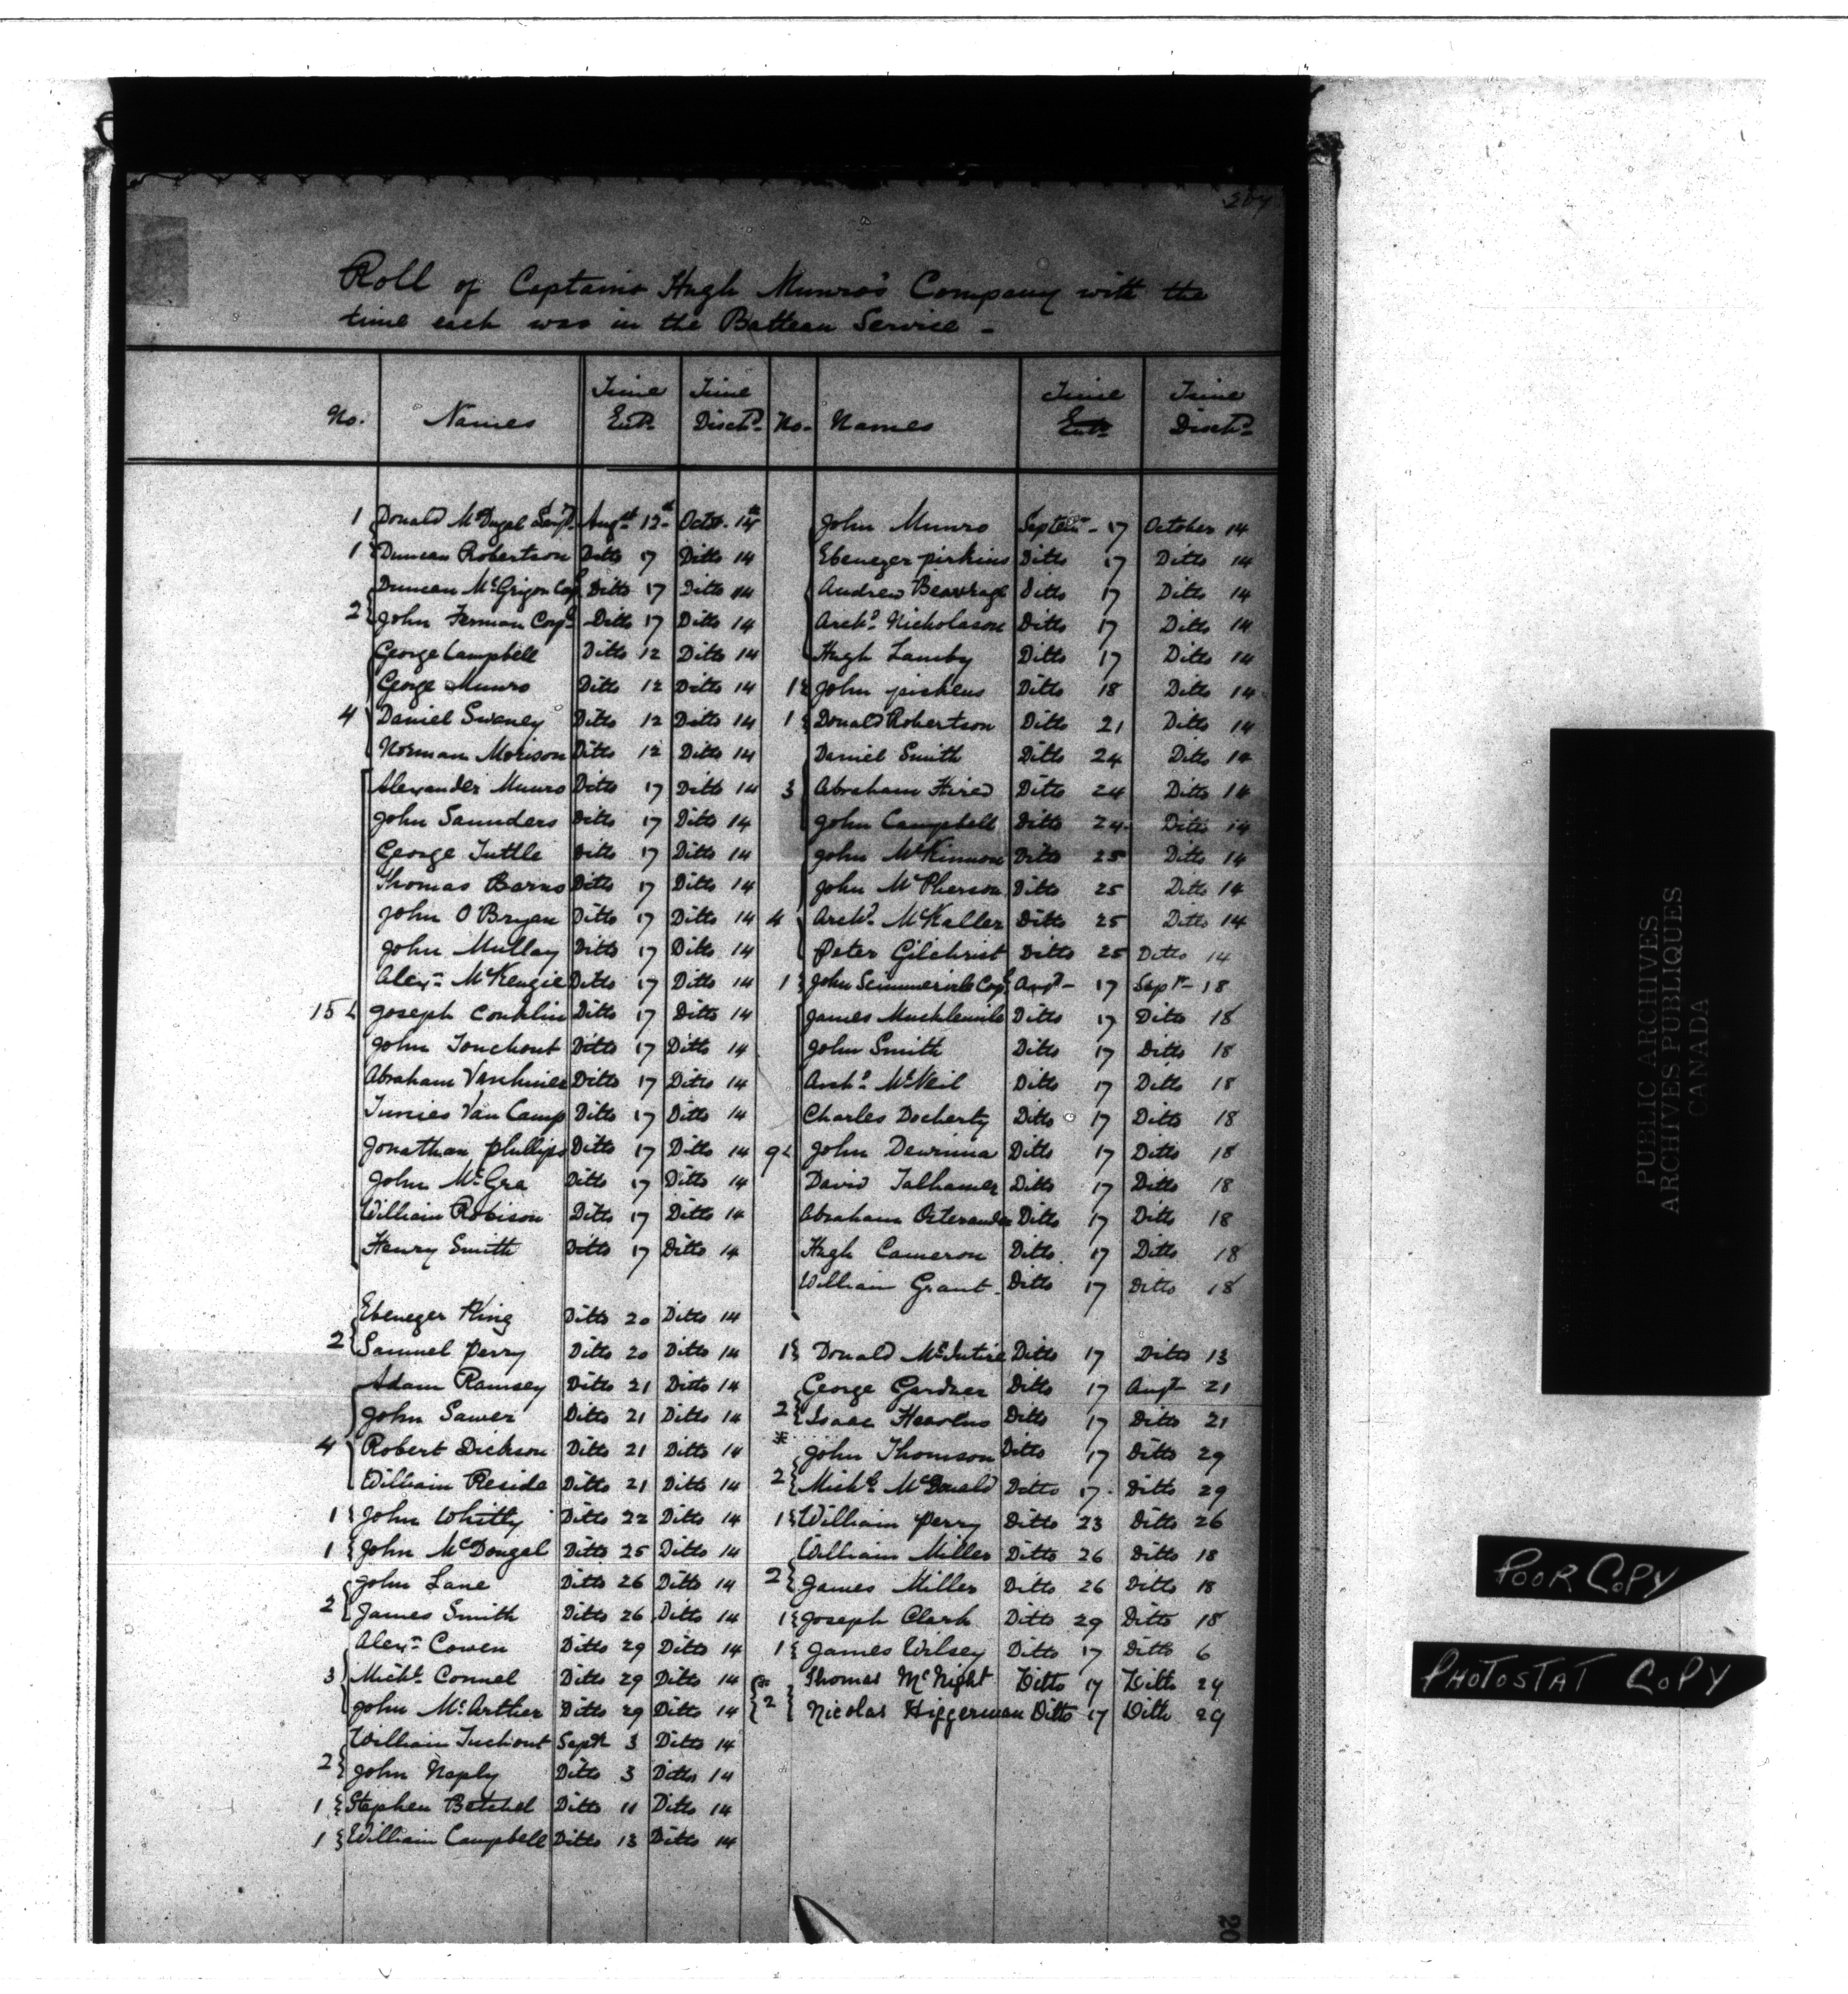 207
Roll of Captains Hugh Munro's Company with the
time each was in the Batteau Service -
No. Names Time Entd. Time Dischd. No. Names Time Entd. Time Dischd.
1 Donald McDugal Serjt. Augst 12th Octr. 14th
1 Duncan Robertson Ditto 17 Ditto 14
Duncan McGrigor Corpl Ditto 17 Ditto 14
2 John Ferman Corpl Ditto 17 Ditto 14
George Campbell Ditto 12 Ditto 14
George Munro Ditto 12 Ditto 14
4 Daniel Swaney Ditto 12 Ditto 14
Norman Morison Ditto 12 Ditto 14
Alexander Munro Ditto 17 Ditto 14
John Saunders Ditto 17 Ditto 14
George Tuttle Ditto 17 Ditto 14
Thomas Barns Ditto 17 Ditto 14
John O Bryan Ditto 17 Ditto 14
John Mullay Ditto 17 Ditto 14
Alexr McKenzie Ditto 17 Ditto 14
15 Joseph Conklin Ditto 17 Ditto 14
John Touchout Ditto 17 Ditto 14
Abraham Ditto 17 Ditto 14
Tunies Van Camp Ditto 17 Ditto 14
Jonathan phillips Ditto 17 Ditto 14
John McGra Ditto 17 Ditto 14
William Robison Ditto 17 Ditto 14
Henry Smith Ditto 17 Ditto 14
Ebenezer King Ditto 20 Ditto 14
2 Samuel Perry Ditto 20 Ditto 14
Adam Ramsey Ditto 21 Ditto 14
John Sawer Ditto 21 Ditto 14
4 Robert Dickson Ditto 21 Ditto 14
William Reside Ditto 21 Ditto 14
1 John Whitty Ditto 22 Ditto 14
1 John McDougal Ditto 25 Ditto 14
John Lane Ditto 26 Ditto 14
2 James Smith Ditto 26 Ditto 14
Alexr Cowen Ditto 29 Ditto 14
3 Michl. Connel Ditto 29 Ditto 14
John McArthur Ditto 29 Ditto 14
William Tuchout Septr 3 Ditto 14
2 John Naply Ditto 3 Ditto 14
1 Stephen Betchel Ditto 11 Ditto 14
1 William Campbell Ditto 13 Ditto 14
John Munro Septemr - 17 October 14
Ebenezer pirkins Ditto 17 Ditto 14
Andrew Beavrage Ditto 17 Ditto 14
Archd. Nicholason Ditto 17 Ditto 14
Hugh Lamby Ditto 17 Ditto 14
1 John pickens Ditto 18 Ditto 14
1 Donald Robertson Ditto 21 Ditto 14
Daniel Smith Ditto 24 Ditto 14
3 Abraham Hired Ditto 24 Ditto 14
John Campbell Ditto 24 Ditto 14
John McKinnon Ditto 25 Ditto 14
John McPherson Ditto 25 Ditto 14
4 Archd. McKaller Ditto 25 Ditto 14
Peter Gilchrist Ditto 25 Ditto 14
1 John Corpl Augt - 17 Sept - 18
James Ditto 17 Ditto 18
John Smith Ditto 17 Ditto 18
Archd. McNeil Ditto 17 Ditto 18
Charles Docherty Ditto 17 Ditto 18
9 John Ditto 17 Ditto 18
David Talhamer Ditto 17 Ditto 18
Abraham Osterander Ditto 17 Ditto 18
Hugh Cameron Ditto 17 Ditto 18
William Grant Ditto 17 Ditto 18
1 Donald McIntire Ditto 17 Ditto 13
George Gardner Ditto 17 Augt 21
2 Isaac Ditto 17 Ditto 21
* John Thomson Ditto 17 Ditto 29
2 Michl. McDonald Ditto 17 Ditto 29
1 William Perry Ditto 23 Ditto 26
William Miller Ditto 26 Ditto 18
2 James Miller Ditto 26 Ditto 18
1 Joseph Clark Ditto 29 Ditto 18
1 James Wilsey Ditto 17 Ditto 6
* Thomas McNight Ditto 17 Ditto 29
2 Nicolas Higgerman Ditto 17 Ditto 29
20
PUBLIC ARCHIVES
ARCHIVES PUBLIQUES
CANADA
POOR COPY
PHOTOSTAT COPY